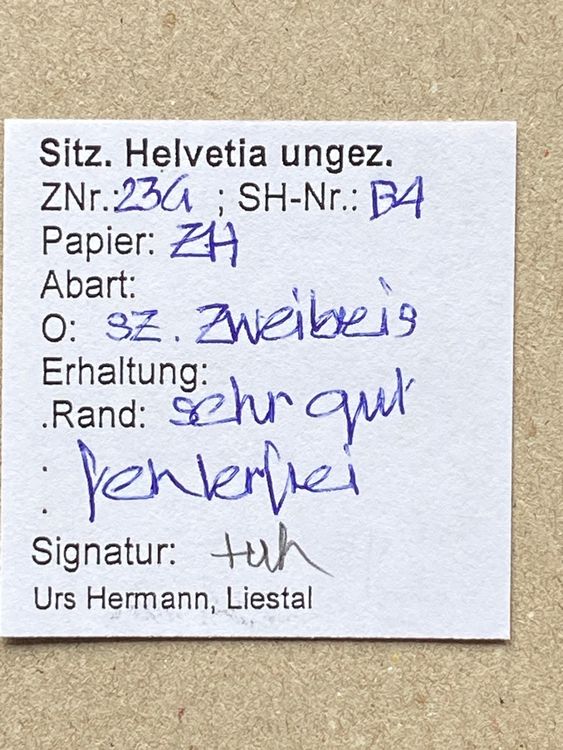 Sitz. Helvetia ungez.
ZNr.: 23G ; SH-Nr.: B4
Papier: ZH
Abart:
O: sz. Zweibreis
Erhaltung:
.Rand: sehr gut
: fehlerfrei
.
Signatur:
Urs Hermann, Liestal